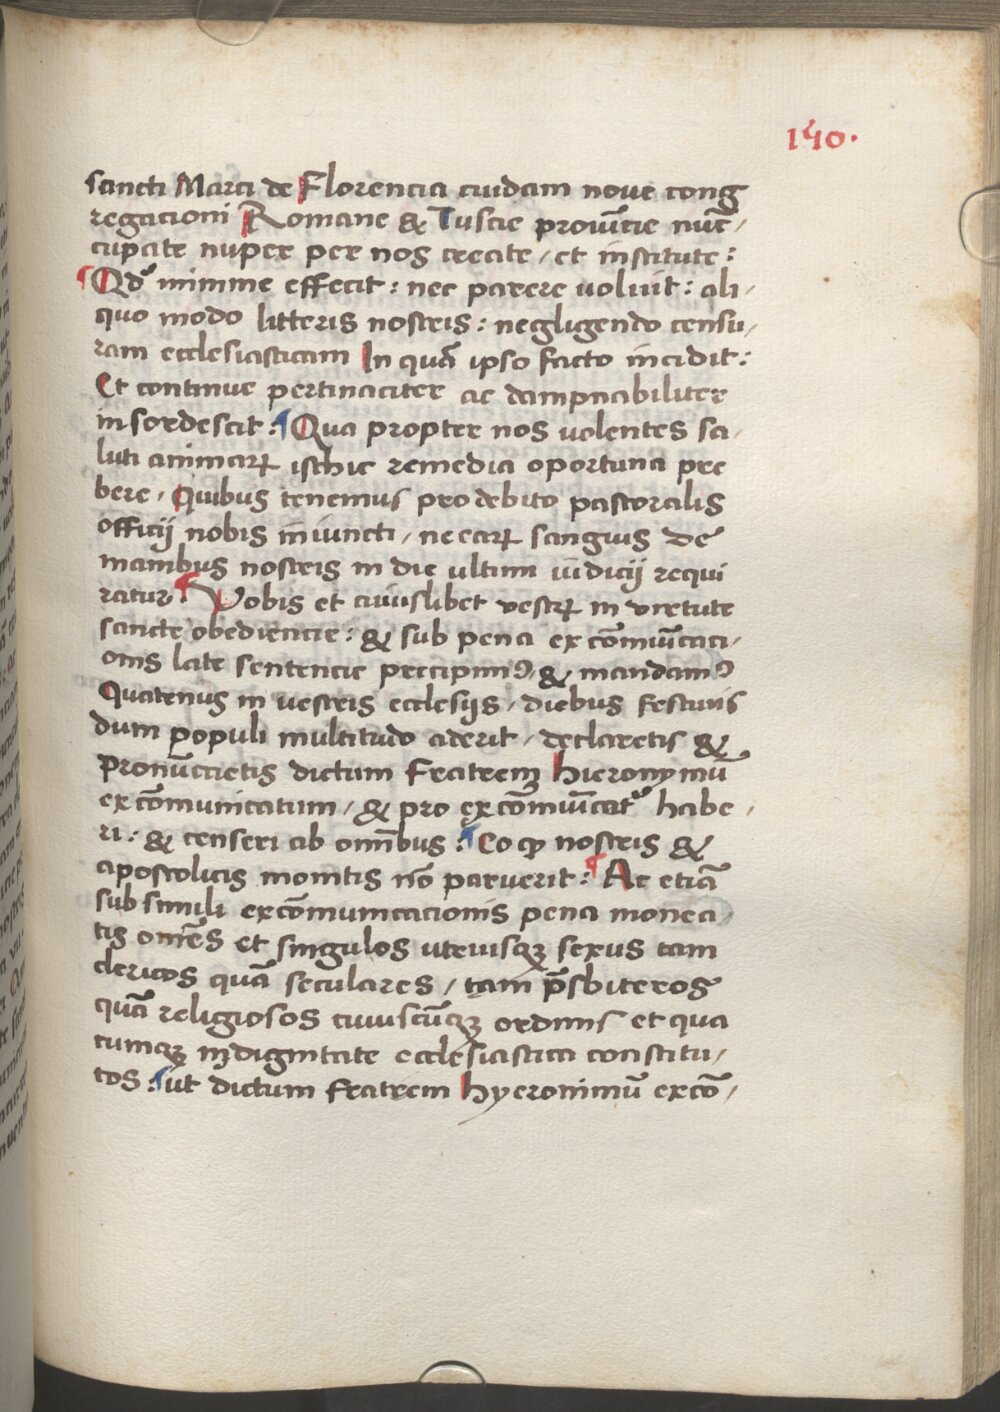 140.
sancti Marci de Florencia cuidam nove cong
regacioni Romane & Tuscie provīcie nūc̄/
cupate nuper per nos create / et institute:
Qd’ minime effecit: nec parere voluit: ali/
quo modo litteris nostris: negligendo censu/
ram ecclesiasticam In quā ipso facto incidit:
Et continue pertinaciter ac dampnabiliter
insordescit: ¶ Qua propter nos volentes sa/
luti animarꝝ isthic remedia oportuna pre
bere / Quibus tenemur pro debito pastoralis
officij nobis iniuncti / ne earꝝ sanguis de
manibus nostris in die ultimi iudicij requi
ratur. ¶ Vobis et cuiuslibet vestrꝝ in virtute
sancte obediencie: & sub pena excōmūicaci/
onis late sentencie precipimꝰ / & mandamꝰ
Quatenus in vestris ecclesijs / diebus festivis
dum populi multitudo aderit / declaretis &
Pronūccietis dictum fratrem hieronymū
excōmunicatum / & pro excōmūicat’ habe/
ri: & censeri ab omībus: ¶ Eo ꝙ nostris &
apostolicis monitis nō paruerit: ¶ Ac etiā
sub simili excōmunicacionis pena monea
tis omēs et singulos utriusqꝫ sexus tam
clericos quā seculares / tam p̄sbiteros
quā religiosos cuiuscūqꝫ ordinis et qua
cumqꝫ in dignitate ecclesiastica constitu/
tos: ¶ ut dictum fratrem hyeronimū excō/